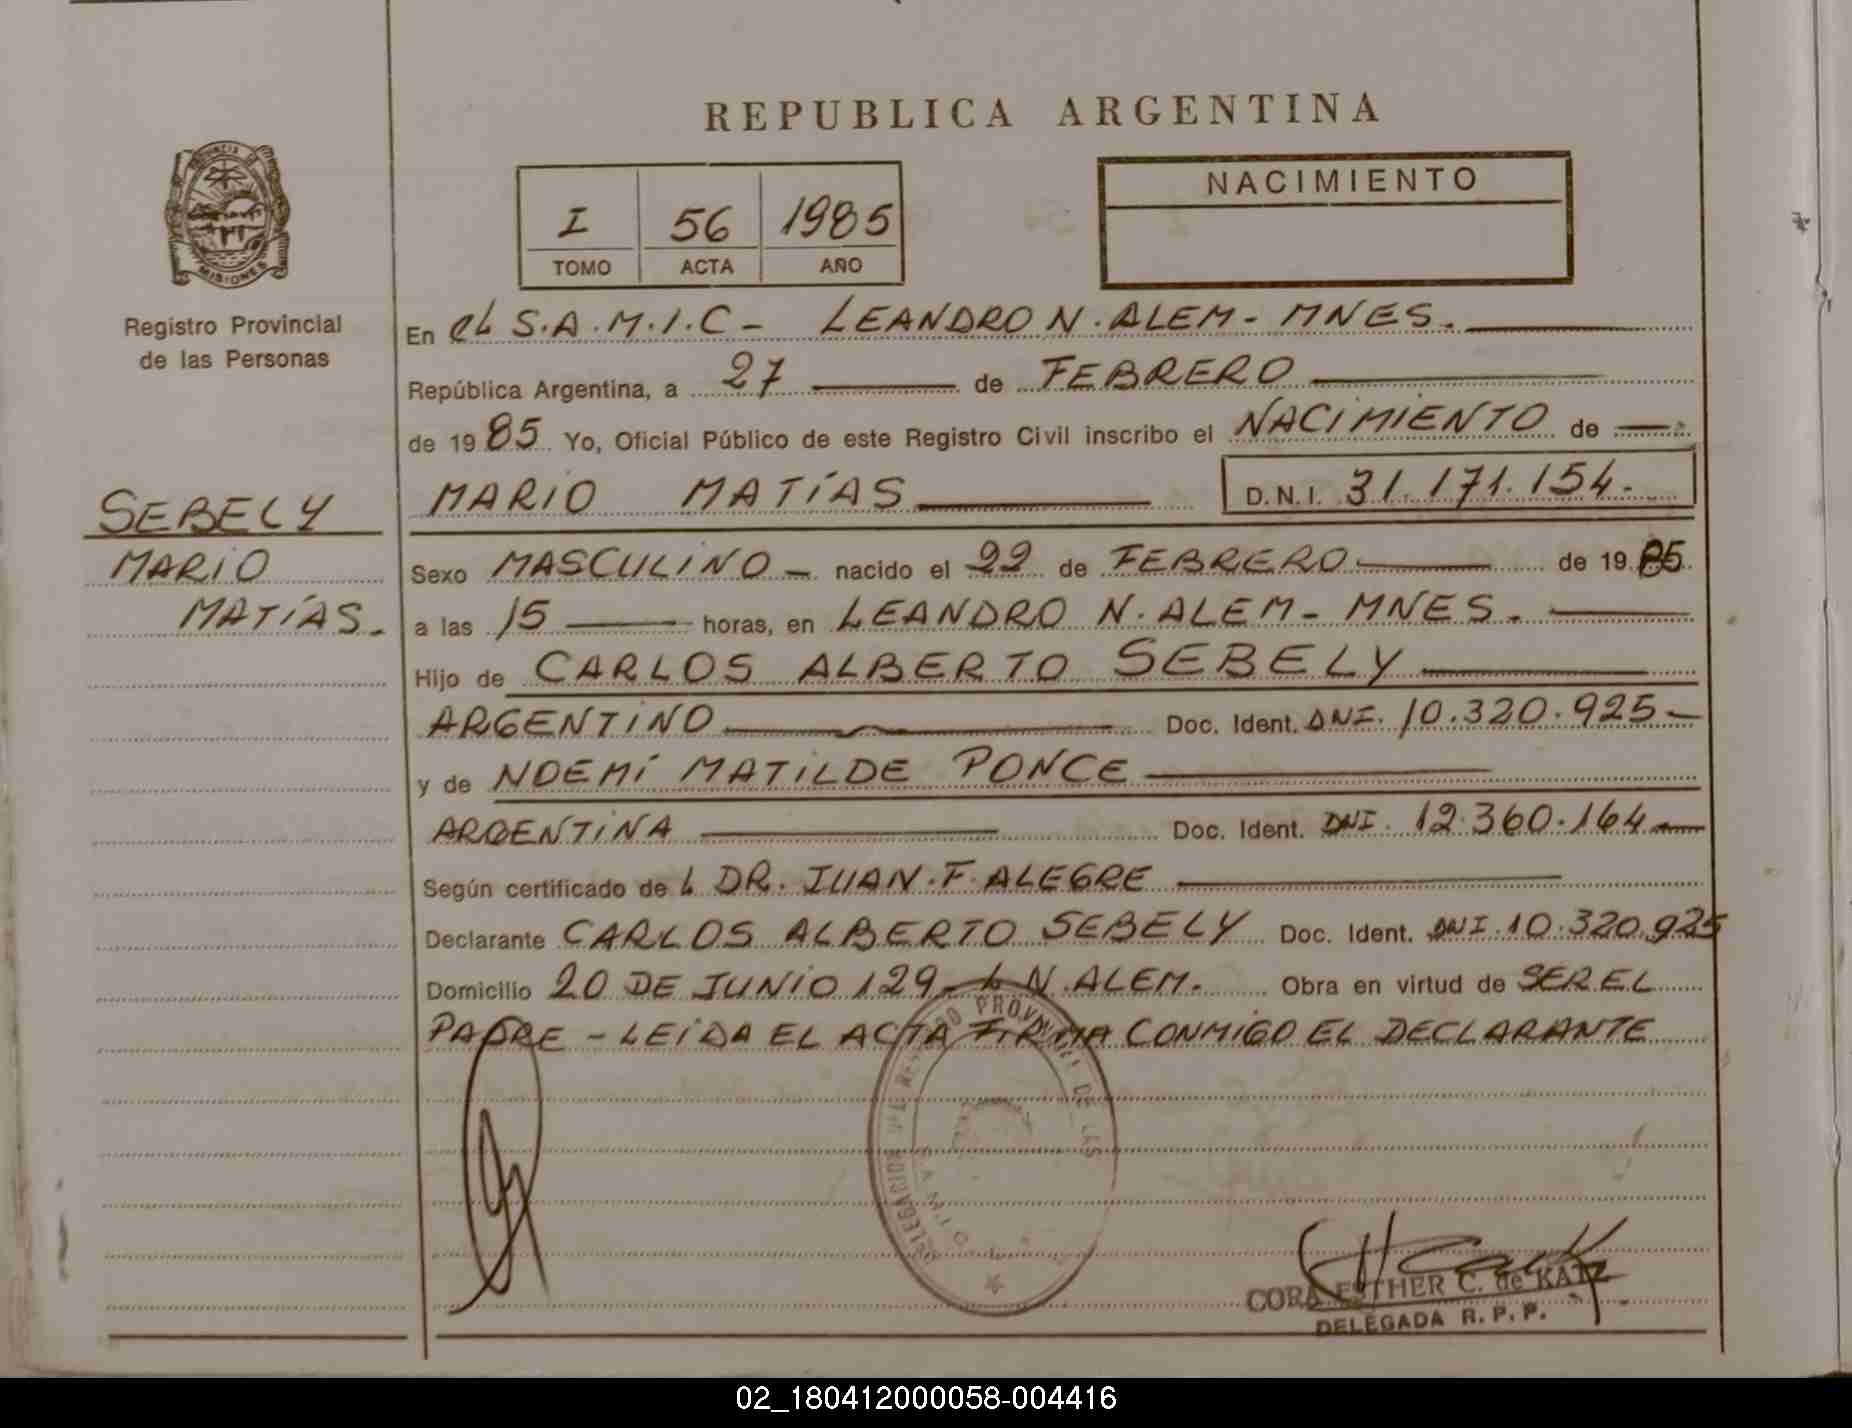 REPUBLICA ARGENTINA
PROVINCIA DE
MISIONES
Registro Provincial
de las Personas
I 56 1985
TOMO ACTA AÑO
NACIMIENTO
En eL S.A.M.I.C- LEANDRO N. ALEM- MNES.
República Argentina, a 27 de FEBRERO
de 1985 Yo, Oficial Público de este Registro Civil inscribo el NACIMIENTO de
MARIO MATÍAS D.N.I. 31.171.154.
SEBELY
MARIO
MATÍAS.
Sexo MASCULINO nacido el 22 de FEBRERO de 1985
a las 15 horas, en LEANDRO N. ALEM- MNES.
Hijo de CARLOS ALBERTO SEBELY
ARGENTINO Doc. Ident. DNI. 10.320.925
y de NOEMÍ MATILDE PONCE
ARGENTINA Doc. Ident. DNI. 12.360.164
Según certificado de L DR. JUAN.F.ALEGRE
Declarante CARLOS ALBERTO SEBELY Doc. Ident. DNI.10.320.925
Domicilio 20 DE JUNIO 129- L N.ALEM. Obra en virtud de SER EL
PADRE - LEIDA EL ACTA FIRMA CONMIGO EL DECLARANTE
DELEGACION REGISTRO PROVINCIAL DE LAS
CORA ESTHER C. de KATZ
DELEGADA R. P. P.
02_180412000058-004416